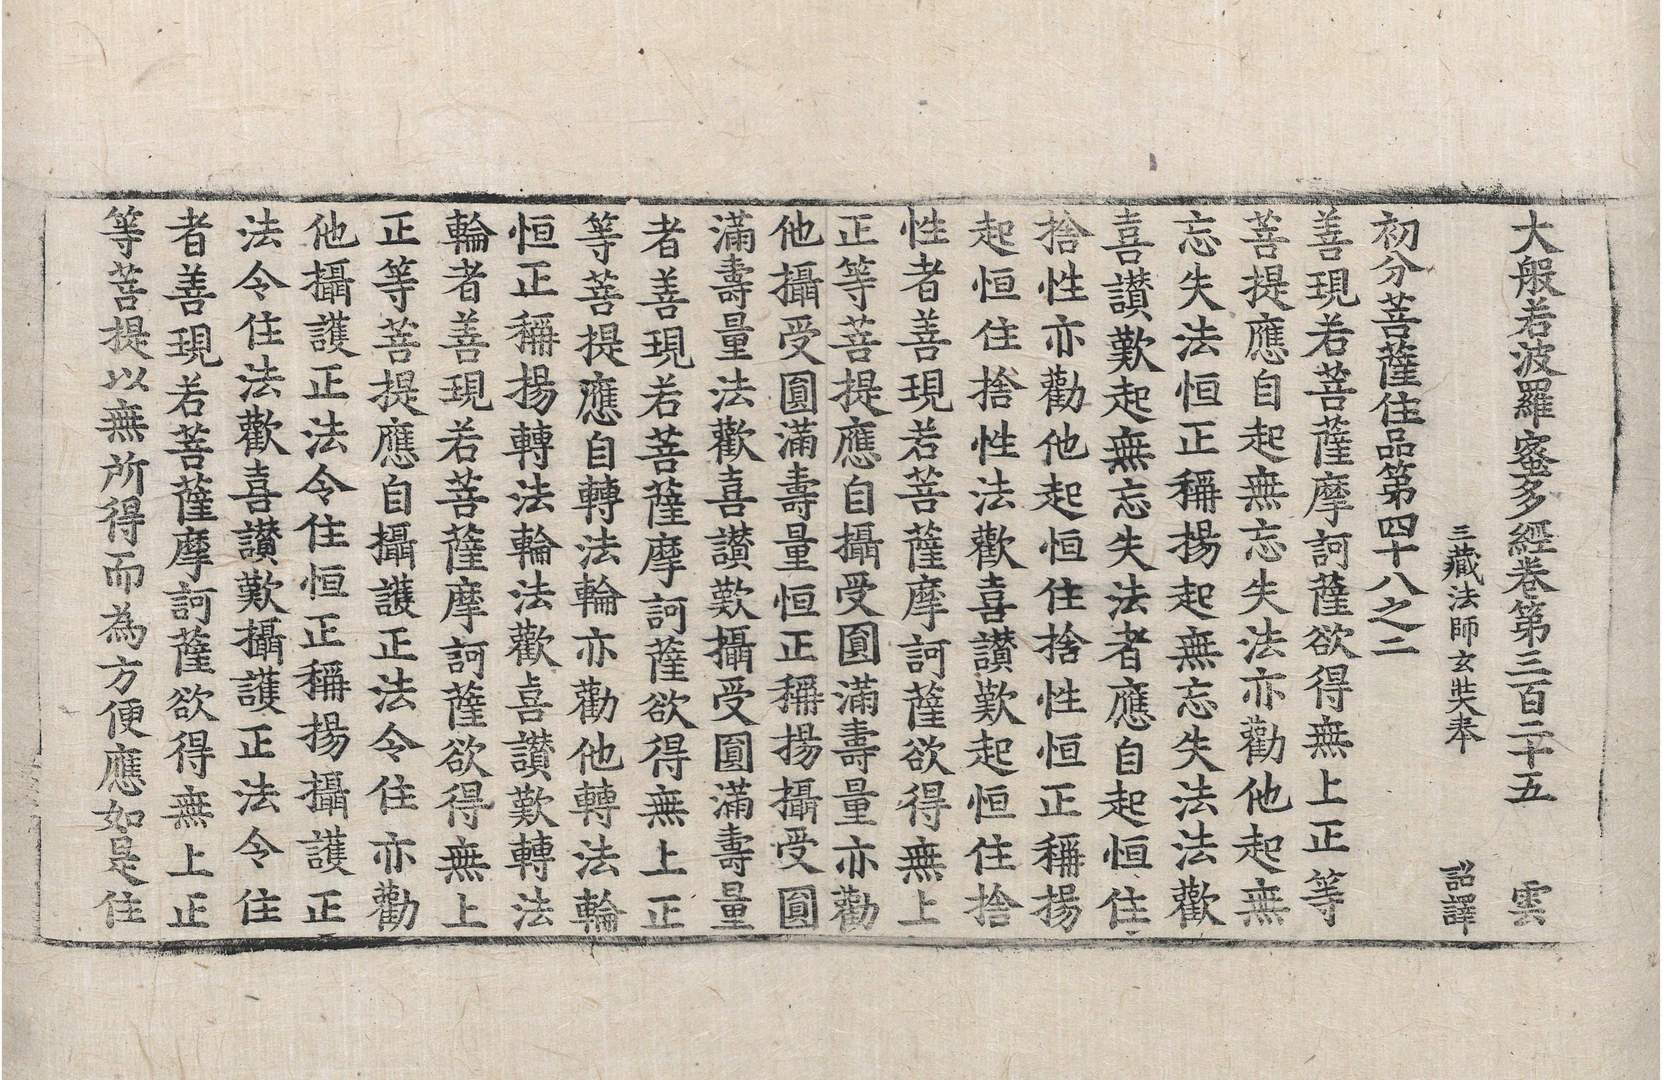 大般若波羅蜜多經卷第三百二十五 雲
三藏法師玄奘奉 詔譯
初分菩薩住品第四十八之二
善現若菩薩摩訶薩欲得無上正等
菩提應自起無忘失法亦勸他起無
忘失法恒正稱揚起無忘失法法歡
喜讃歎起無忘失法者應自起恒住
捨性亦勸他起恒住捨性恒正稱揚
起恒住捨性法歡喜讃歎起恒住捨
性者善現若菩薩摩訶薩欲得無上
正等菩提應自攝受圓滿壽量亦勸
他攝受圓滿壽量恒正稱揚攝受圓
滿壽量法歡喜讃歎攝受圓滿壽量
者善現若菩薩摩訶薩欲得無上正
等菩提應自轉法輪亦勸他轉法輪
恒正稱揚轉法輪法歡喜讃歎轉法
輪者善現若菩薩摩訶薩欲得無上
正等菩提應自攝護正法令住亦勸
他攝護正法令住恒正稱揚攝護正
法令住法歡喜讃歎攝護正法令住
者善現若菩薩摩訶薩欲得無上正
等菩提以無所得而為方便應如是住